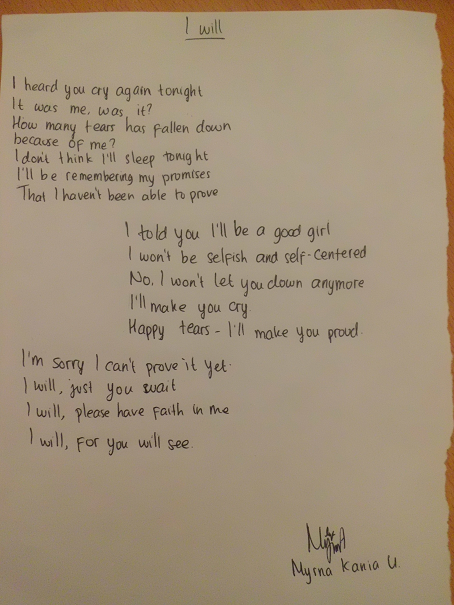 I will
I heard you cry again tonight
It was me, was it?
How many tears has fallen down
because of me?
I don't think I'll sleep tonight
I'll be remembering my promises
That I haven't been able to prove
I told you I'll be a good girl
I won't be selfish and self-centered
No, I won't let you down anymore
I'll make you cry
Happy tears - I'll make you proud.
I'm sorry I can't prove it yet.
I will, just you wait
I will, please have faith in me
I will, for you will see.
Myrna Kania U.